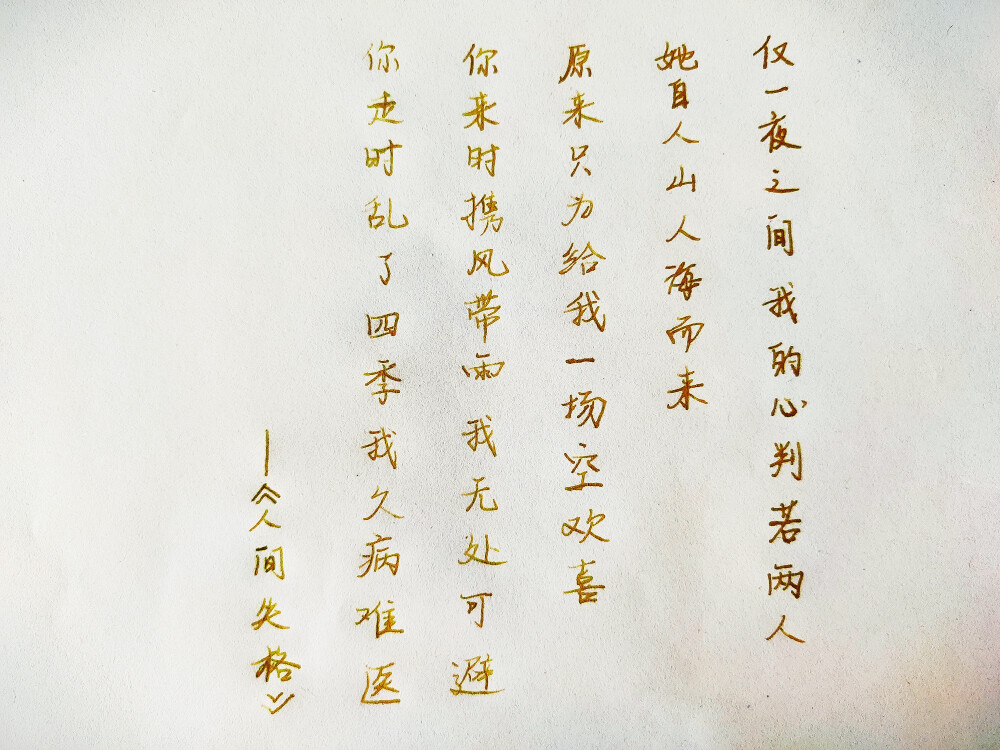 仅一夜之间我的心判若两人
她自人山人海而来
原来只为给我一场空欢喜
你来时携风带雨我无处可避
你走时乱了四季我久病难医
—《人间失格》